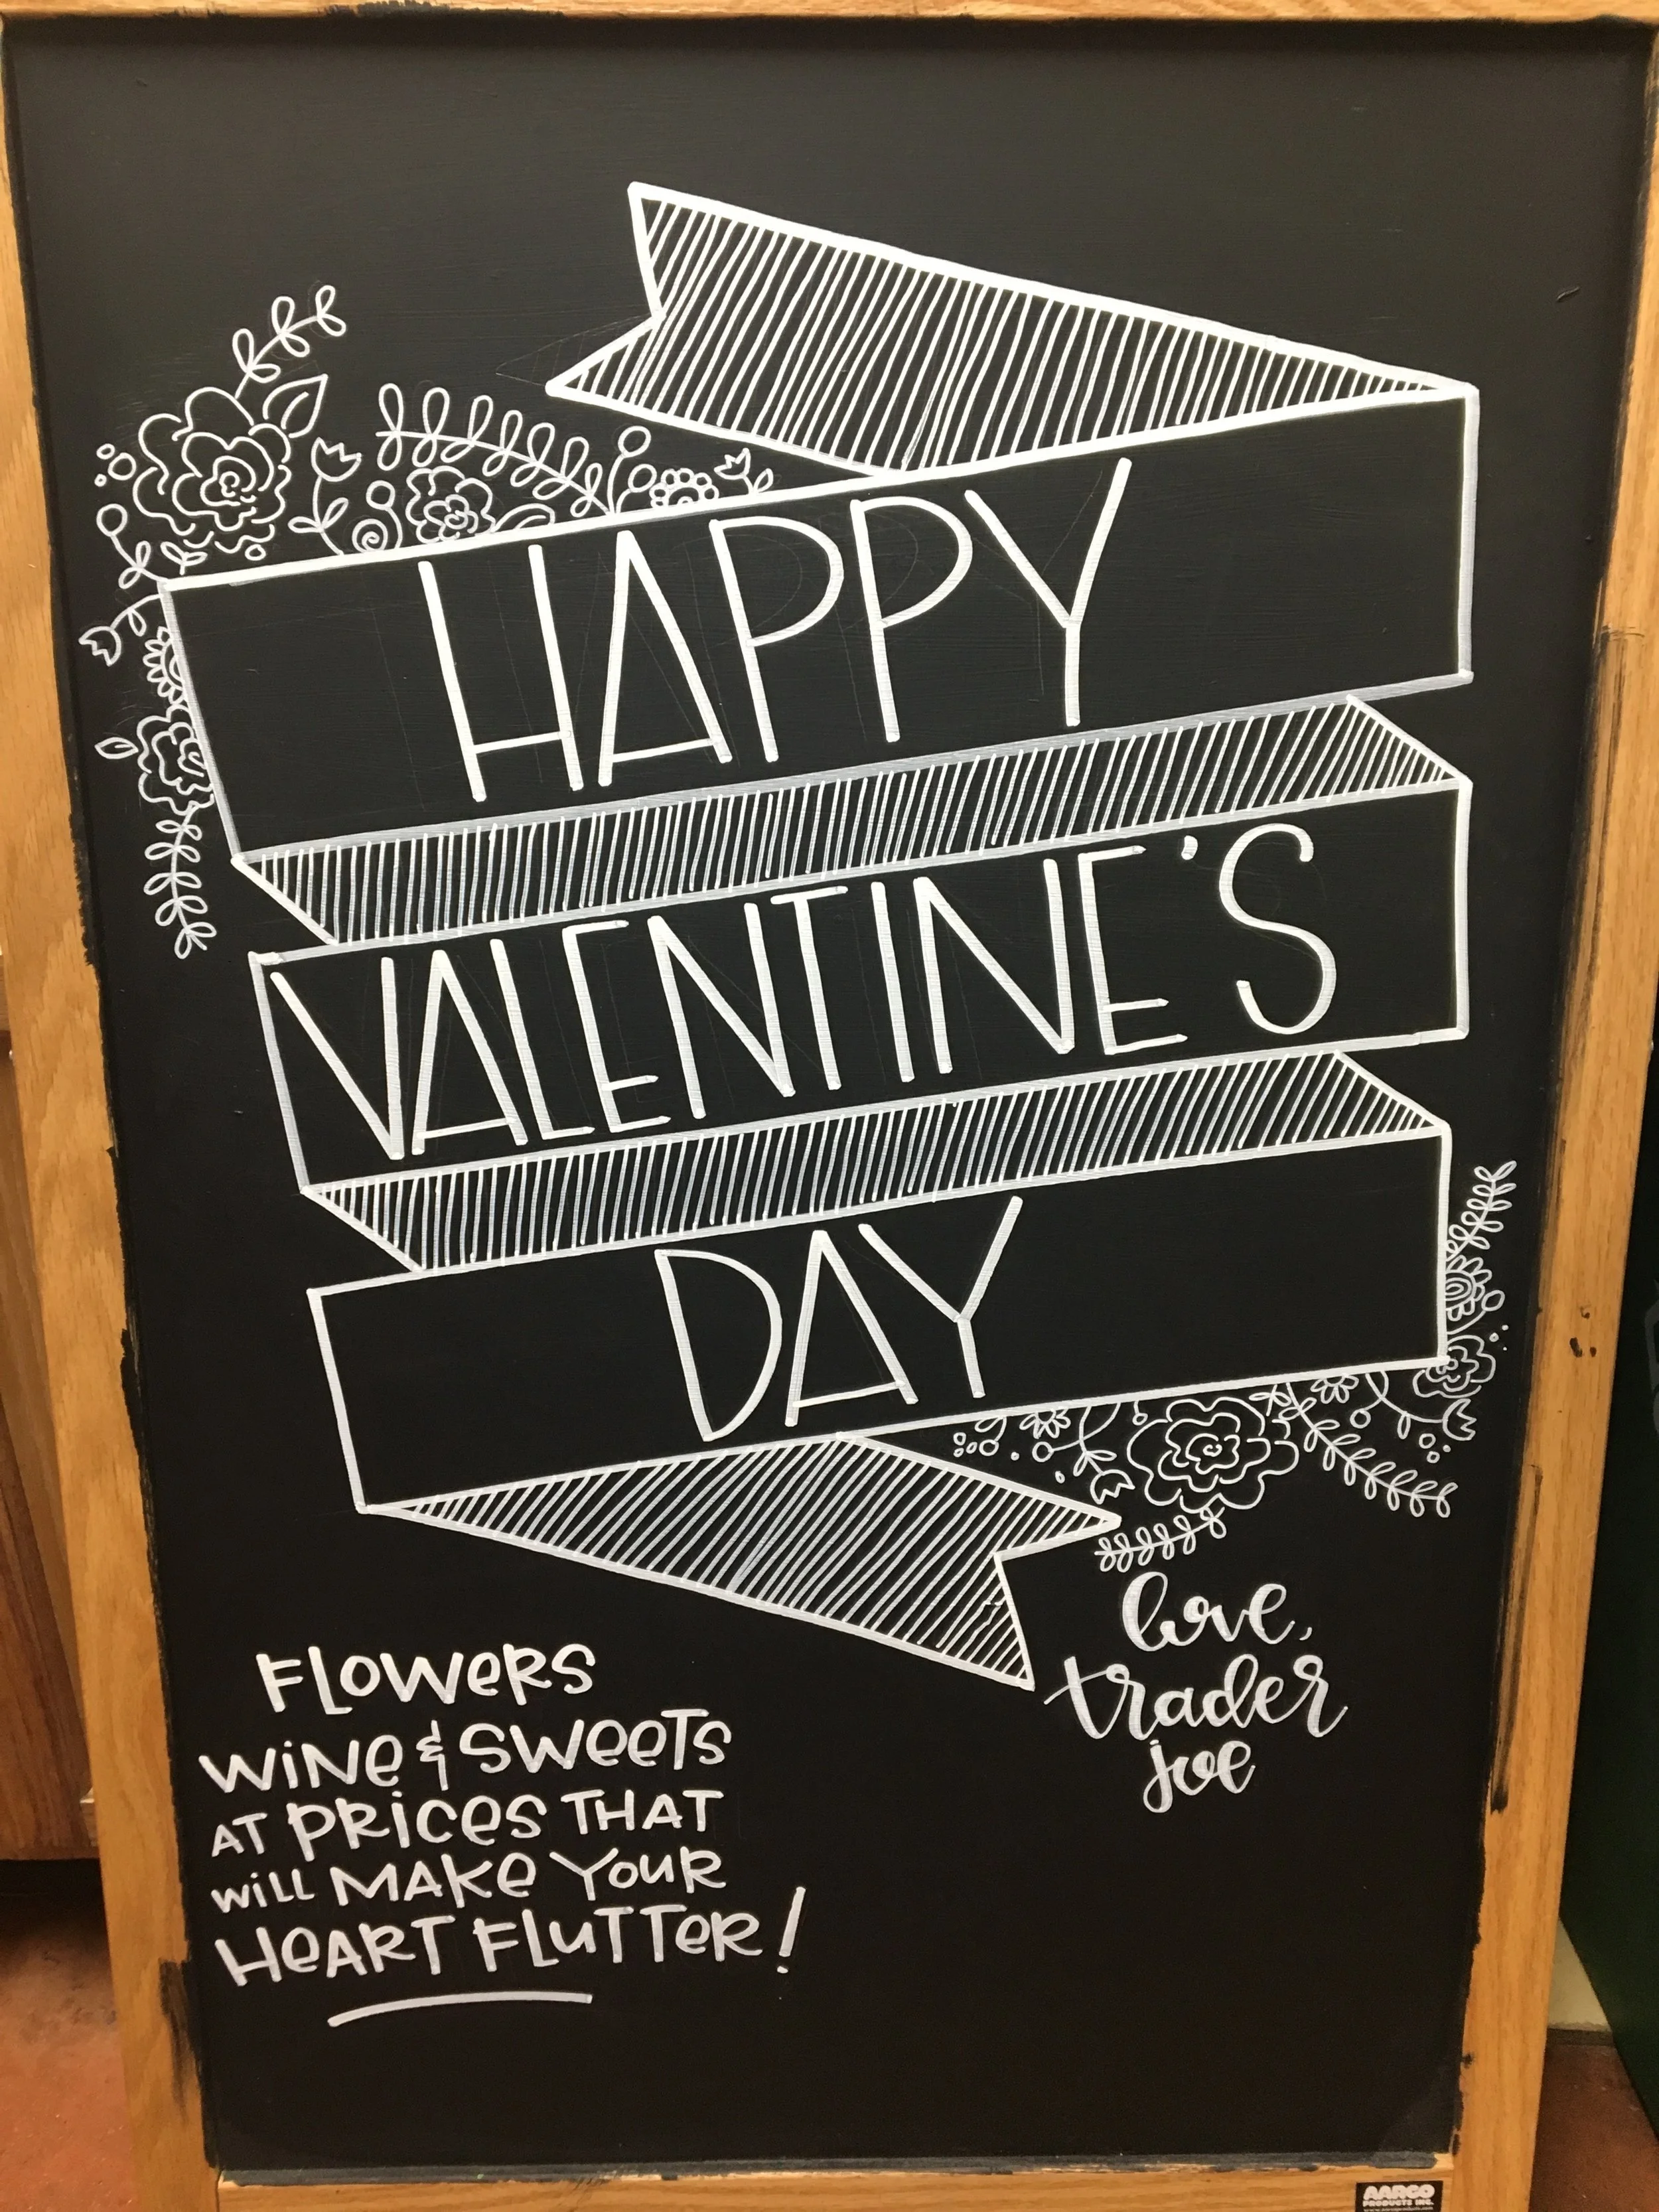 HAPPY
VALENTINE'S
DAY
love,
trader
joe
FLOWeRS
WiNe & SWeeTS
AT PRiCeS THAT
WiLL MAKe YOuR
HeART FLuTTeR!
AARGO
PRODUCTS INC.